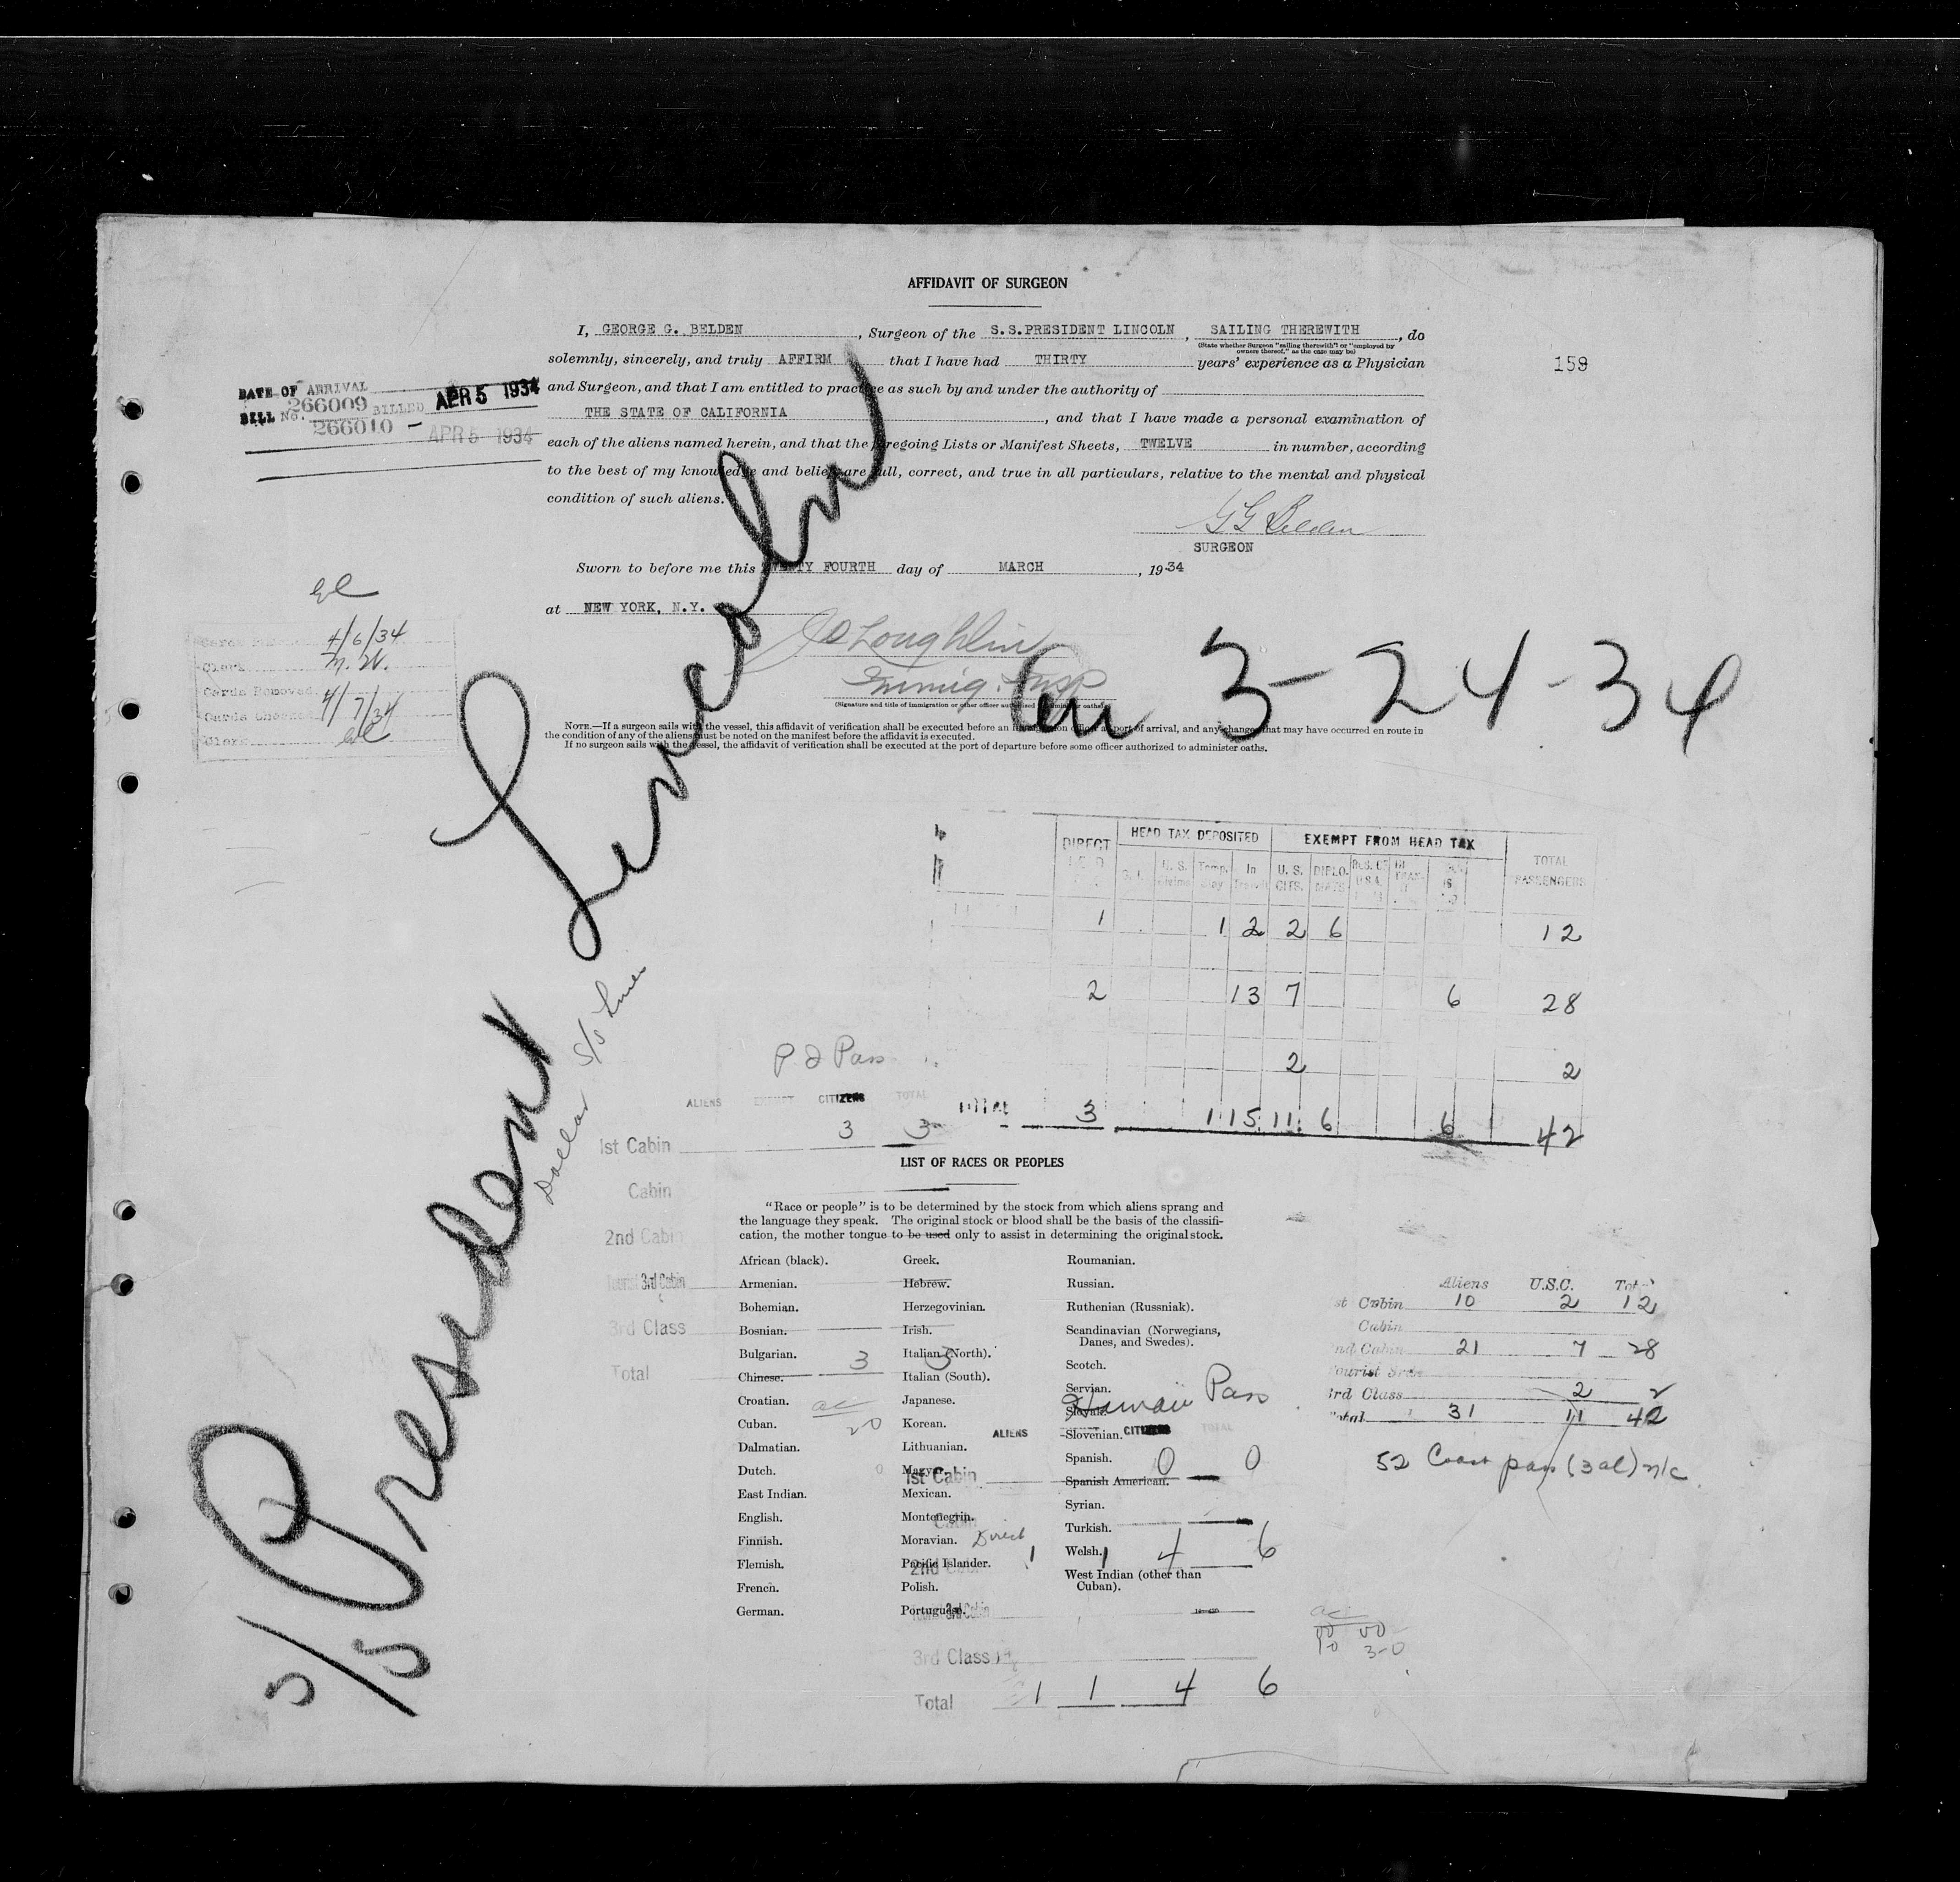 AFFIDAVIT OF SURGEON
I, GEORGE G. BELDEN, Surgeon of the S.S.PRESIDENT LINCOLN, SAILING THEREWITH, do
(State whether Surgeon "sailing therewith" or "employed by owners thereof," as the case may be)
solemnly, sincerely, and truly AFFIRM that I have had THIRTY years' experience as a Physician
159
and Surgeon, and that I am entitled to practice as such by and under the authority of
THE STATE OF CALIFORNIA, and that I have made a personal examination of
each of the aliens named herein, and that the foregoing Lists or Manifest Sheets, TWELVE in number, according
to the best of my knowledge and belief, are full, correct, and true in all particulars, relative to the mental and physical
condition of such aliens.
DATE OF ARRIVAL
BILL No. 266009 BILLED APR 5 1934
266010 - APR 5 1934
G G Belden
SURGEON
Sworn to before me this TWENTY FOURTH day of MARCH, 1934
at NEW YORK, N.Y.
Loughlin
Immig. Insp
(Signature and title of immigration or other officer authorized to administer oaths)
4/6/34
Clerk
Cards Removed 4/7/34
Cards Checked
Clerk
3-24-34
NOTE.—If a surgeon sails with the vessel, this affidavit of verification shall be executed before an immigration officer at port of arrival, and any changes that may have occurred en route in
the condition of any of the aliens must be noted on the manifest before the affidavit is executed.
If no surgeon sails with the vessel, the affidavit of verification shall be executed at the port of departure before some officer authorized to administer oaths.
S/S President Lincoln
Dollar S/S Line
DIRECT HEAD TAX DEPOSITED EXEMPT FROM HEAD TAX TOTAL PASSENGERS
U.S. Temp. Stay In Transit U.S. CITS. DIPLOMATS RES. OF U.S.A. IN TRANSIT
1 1 2 2 6 12
2 13 7 6 28
2 2
TOTAL 3 1 15 11 6 6 42
P I Pass
ALIENS EXEMPT CITIZENS TOTAL
1st Cabin 3 3
Cabin
2nd Cabin
Tourist 3rd Cabin
3rd Class
Total 3 3
LIST OF RACES OR PEOPLES
"Race or people" is to be determined by the stock from which aliens sprang and
the language they speak. The original stock or blood shall be the basis of the classifi-
cation, the mother tongue to be used only to assist in determining the original stock.
African (black).
Armenian.
Bohemian.
Bosnian.
Bulgarian.
Chinese.
Croatian.
Cuban.
Dalmatian.
Dutch.
East Indian.
English.
Finnish.
Flemish.
French.
German.
Greek.
Hebrew.
Herzegovinian.
Irish.
Italian (North).
Italian (South).
Japanese.
Korean.
Lithuanian.
Magyar.
Mexican.
Montenegrin.
Moravian.
Pacific Islander.
Polish.
Portuguese.
Roumanian.
Russian.
Ruthenian (Russniak).
Scandinavian (Norwegians,
Danes, and Swedes).
Scotch.
Servian.
Slovak.
Slovenian.
Spanish.
Spanish American.
Syrian.
Turkish.
Welsh.
West Indian (other than
Cuban).
Hawaii Pass
ALIENS CITIZENS TOTAL
1st Cabin 0 0
Cabin
Direct
2nd Cabin 1 1 4 6
Tourist 3rd Cabin
3rd Class
Total 1 1 4 6
Aliens U.S.C. Total
1st Cabin 10 2 12
Cabin
2nd Cabin 21 7 28
Tourist 3rd
3rd Class 2 2
Total 31 11 42
52 Coast pass (3 al) n/c